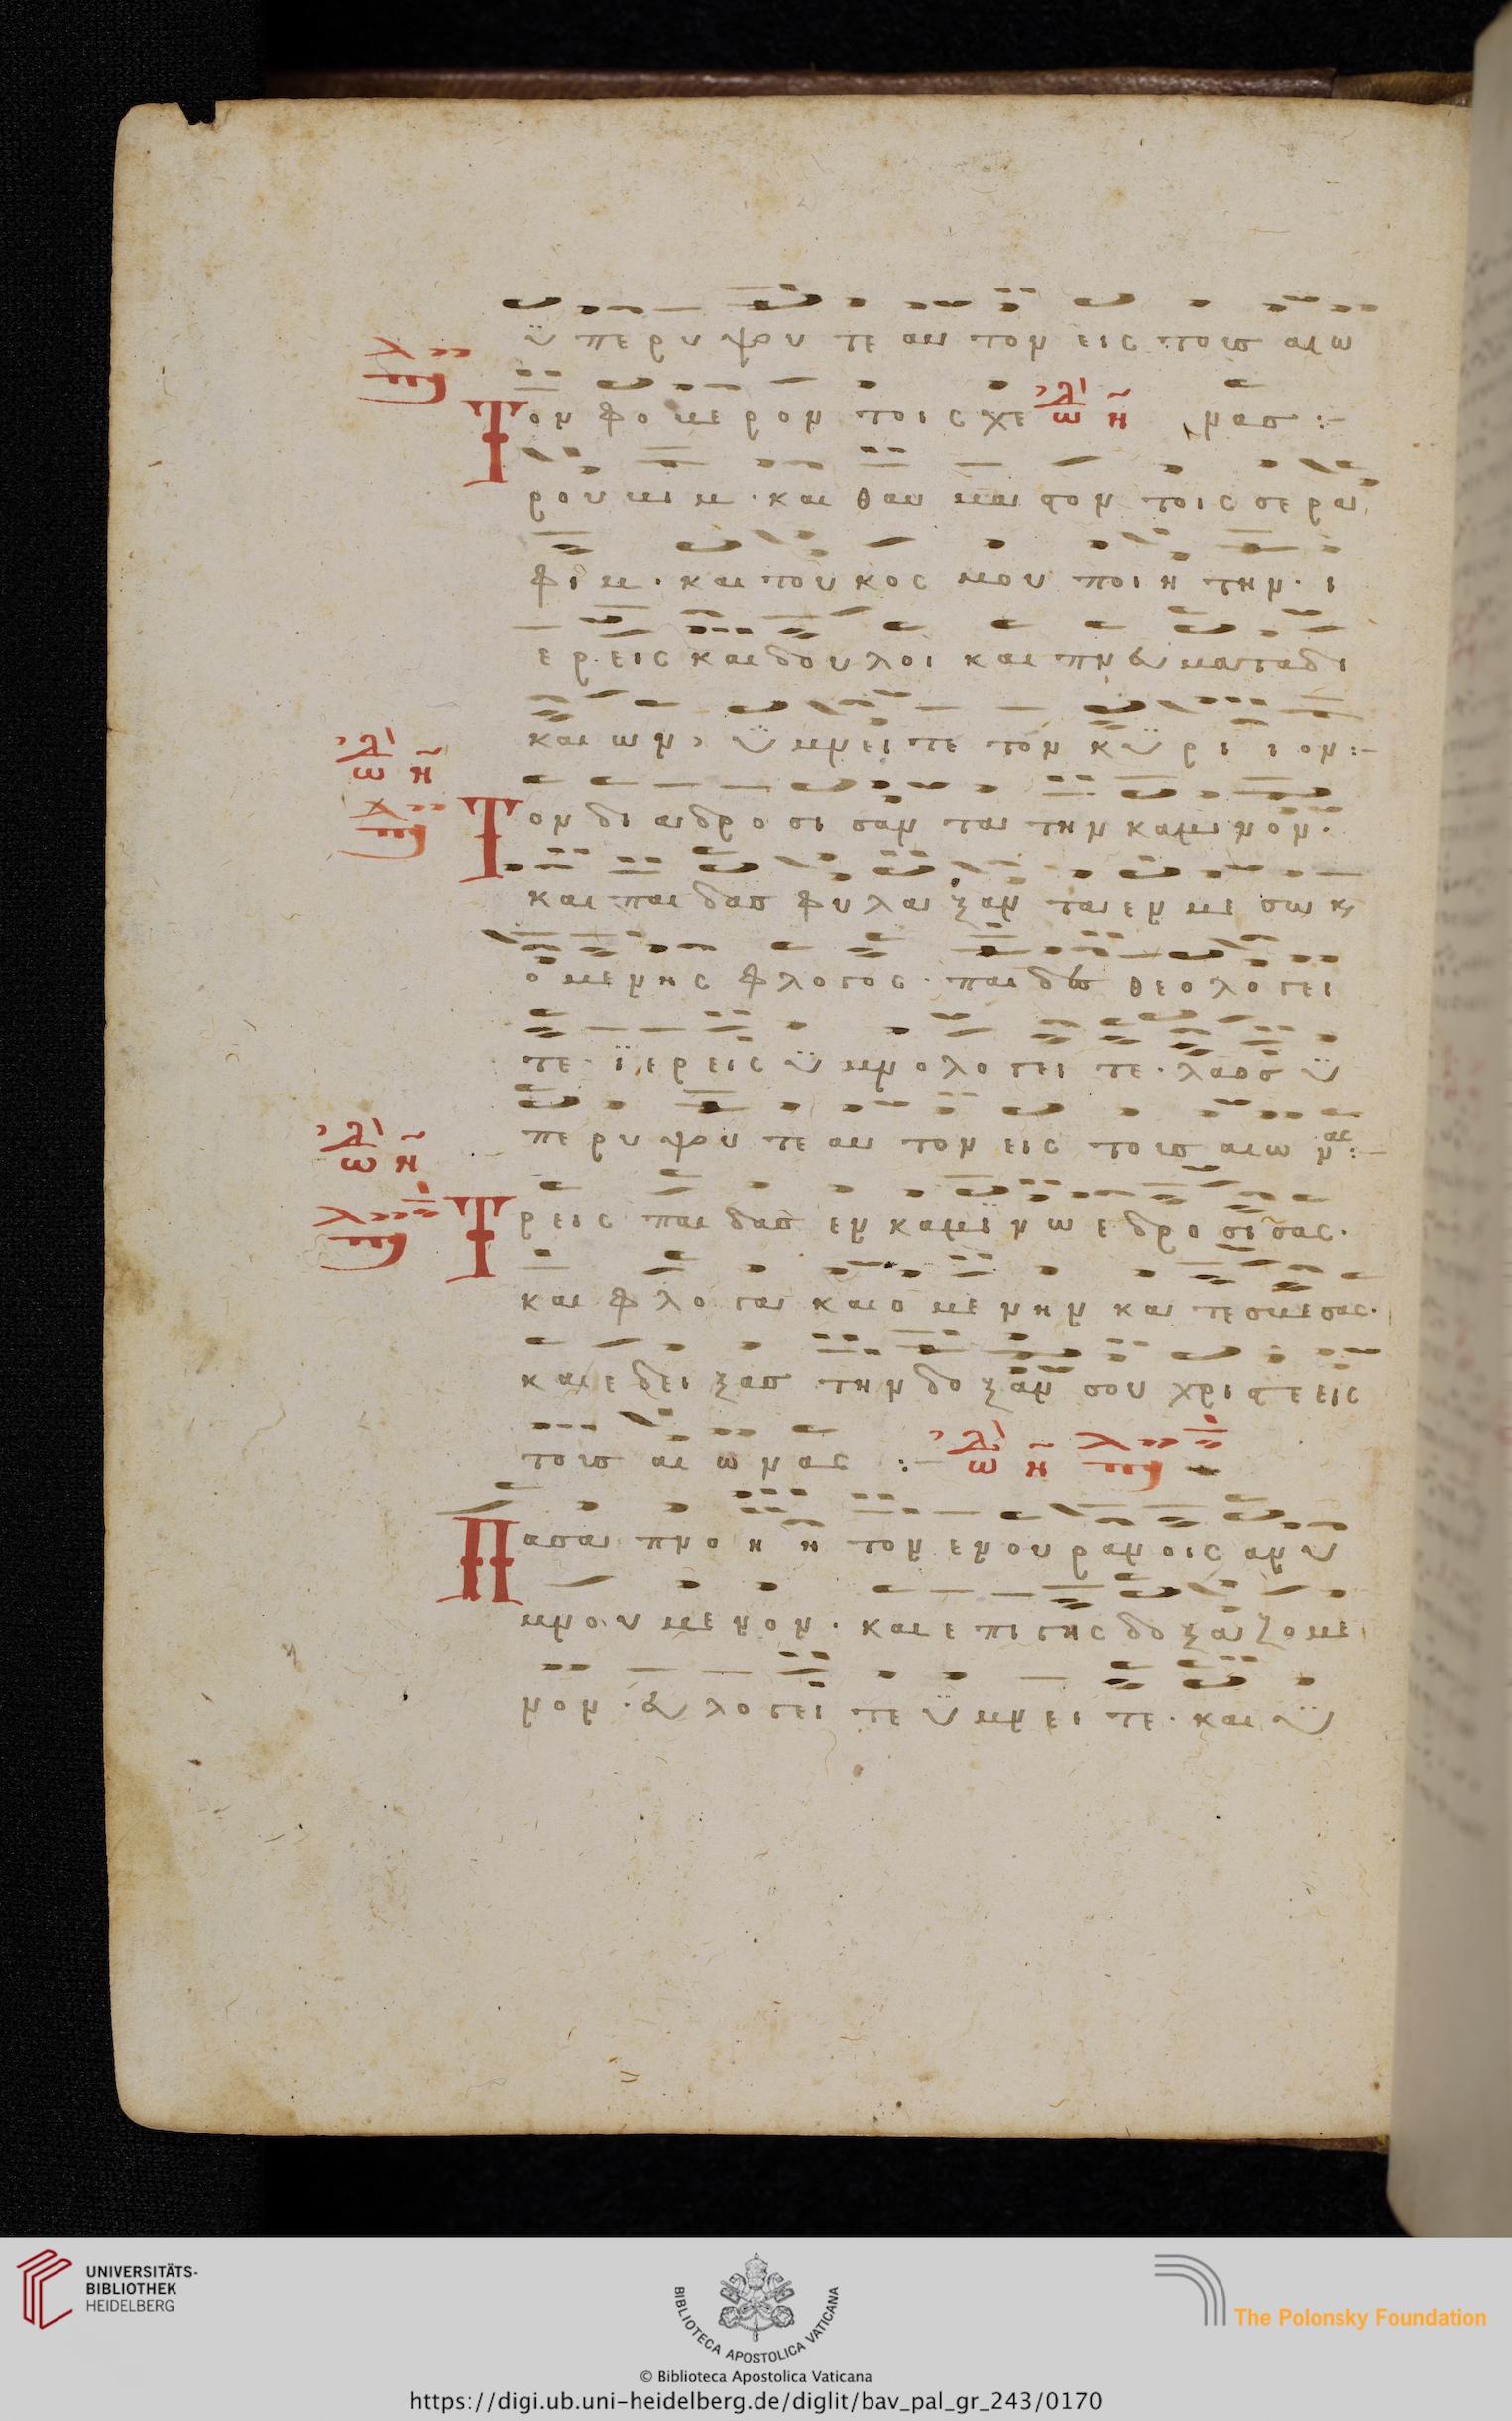 ϋ περ υ ψου τε αυ τον εις τους αιω
Τον φο βε ρον τοις χε ωδη η νας :–
ρου βιμ · και θαυ μα στον τοις σε ρα
φιμ · και του κοσ μου ποι η την · ι
ερεις και δου λοι και πνευ μα τα δι
και ων, ϋ μνει τε τον κϋ ρι ι ον :–
ωδη η
Τον δι α δρο σι σαν τα την καμι νον ·
και παι δας φυ λα ξαν τα εν με σω κ
ο με νης φλογος · παι δες θεο λο γει
τε · ϊερεις ϋ μνο λο γει τε · λαος ϋ
περ υ ψου τε αυ τον εις τους αιω νας :–
ωδη η
Τρεις παι δας εν καμϊ νω ε δρο σισας ·
και φ λο γα και ο με νην κα τε σβεσας ·
και ε δει ξας την δο ξαν σου χριστε εις
τους αι ω νας :– ωδη η
Πασα πνο η η τον εν ου ραν οις αν υ
μνου με νον · και ε πι γης δο ξα ζομε
νον · ευ λο γει τε ϋ μνει τε · και ϋ
UNIVERSITÄTS-
BIBLIOTHEK
HEIDELBERG
BIBLIOTECA APOSTOLICA VATICANA
The Polonsky Foundation
© Biblioteca Apostolica Vaticana
https://digi.ub.uni-heidelberg.de/diglit/bav_pal_gr_243/0170